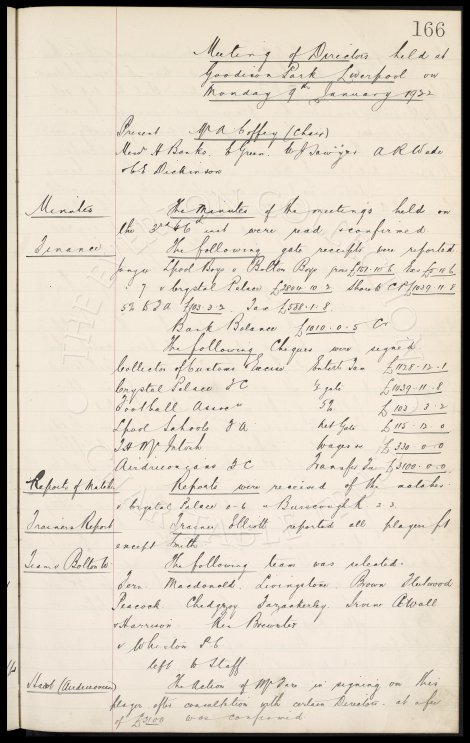 166
Meeting of Directors held at
Goodison Park Liverpool on
Monday 9th January 1922
Present Mr A Coffey (Chair)
Messrs H Banks. E Green. W J Sawyer A R Wade
& C E Dickinson
Minutes The Minutes of the meetings held on
the 3rd & 6th inst were read & confirmed
Finance The following gate receipts were reported
Lpool Boys v Bolton Boys £151.11.6 Tax £5.18.6
7 v Crystal Palace £2804.10.2 Share to C P £1039.11.8
5% to F A £103.3.2 Tax £588.1.8
Bank Balance £1010.0.5 Cr
The following Cheques were signed
Collector of Customs & Excise Entert Tax £1128.12.1
Crystal Palace F C ½ gate £1039.11.8
Football Assocn 5% £103.3.2
Lpool Schools F A Net Gate £115.12.0
T H McIntosh Wages &c £330.0.0
Airdrieonians F C Transfer Fee £3100.0.0
Reports of Matches Reports were received of the matches.
v Crystal Palace 0-6 v Burscough R 2-3
Trainers Report Trainer Elliott reported all players fit
except Smith
Team v Bolton W The following team was selected.
Fern. Macdonald. Livingstone. Brown Fleetwood
Peacock. Chedgzoy Fazackerley. Irvine A Wall
& Harrison. Res Brewster
v Whiston P C
left to Staff
Hart (Airdrieonians) The Action of Mr in signing on this
player after consultation with certain Directors. at a fee
of £3100 was confirmed